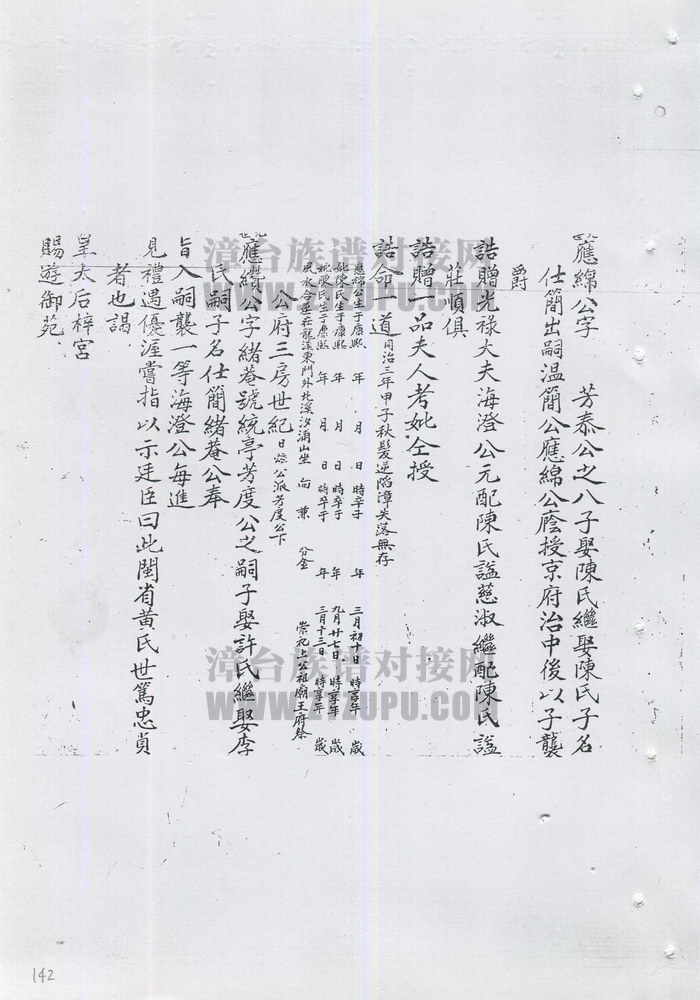 應綿公字　芳泰公之八子娶陳氏繼娶陳氏子名
仕簡出嗣溫簡公應綿公廕授京府治中後以子襲
爵
誥贈光祿大夫海澄公元配陳氏諡慈淑繼配陳氏諡
莊順俱
誥贈一品夫人考妣仝授
誥命一道同治三年甲子秋髮逆陷漳失落無存
應綿公生于康熙　年　月　日　時卒于　年　三月初十日　時享年　歲
妣陳氏生于康熙　年　月　日　時卒于　年　九月廿七日　時享年　歲
妣陳氏生于康熙　年　月　日　時卒于　年　三月十三日　時享年　歲
風水合葬在龍溪東門外北溪汐浦山坐　向　兼　分金　崇祀上公祖廟王府祭
公府三房世紀　日　公派芳度公下
應纘公字緒菴號統亭芳度公之嗣子娶許氏繼娶李
氏嗣子名仕簡緒菴公奉
旨入嗣襲一等海澄公每進
見禮遇優渥嘗指以示廷臣曰此閩省黃氏世篤忠貞
者也謁
皇太后梓宮
賜遊御苑
漳台族谱对接网
WWW.ZTZUPU.COM
漳台族谱对接网
WWW.ZTZUPU.COM
142